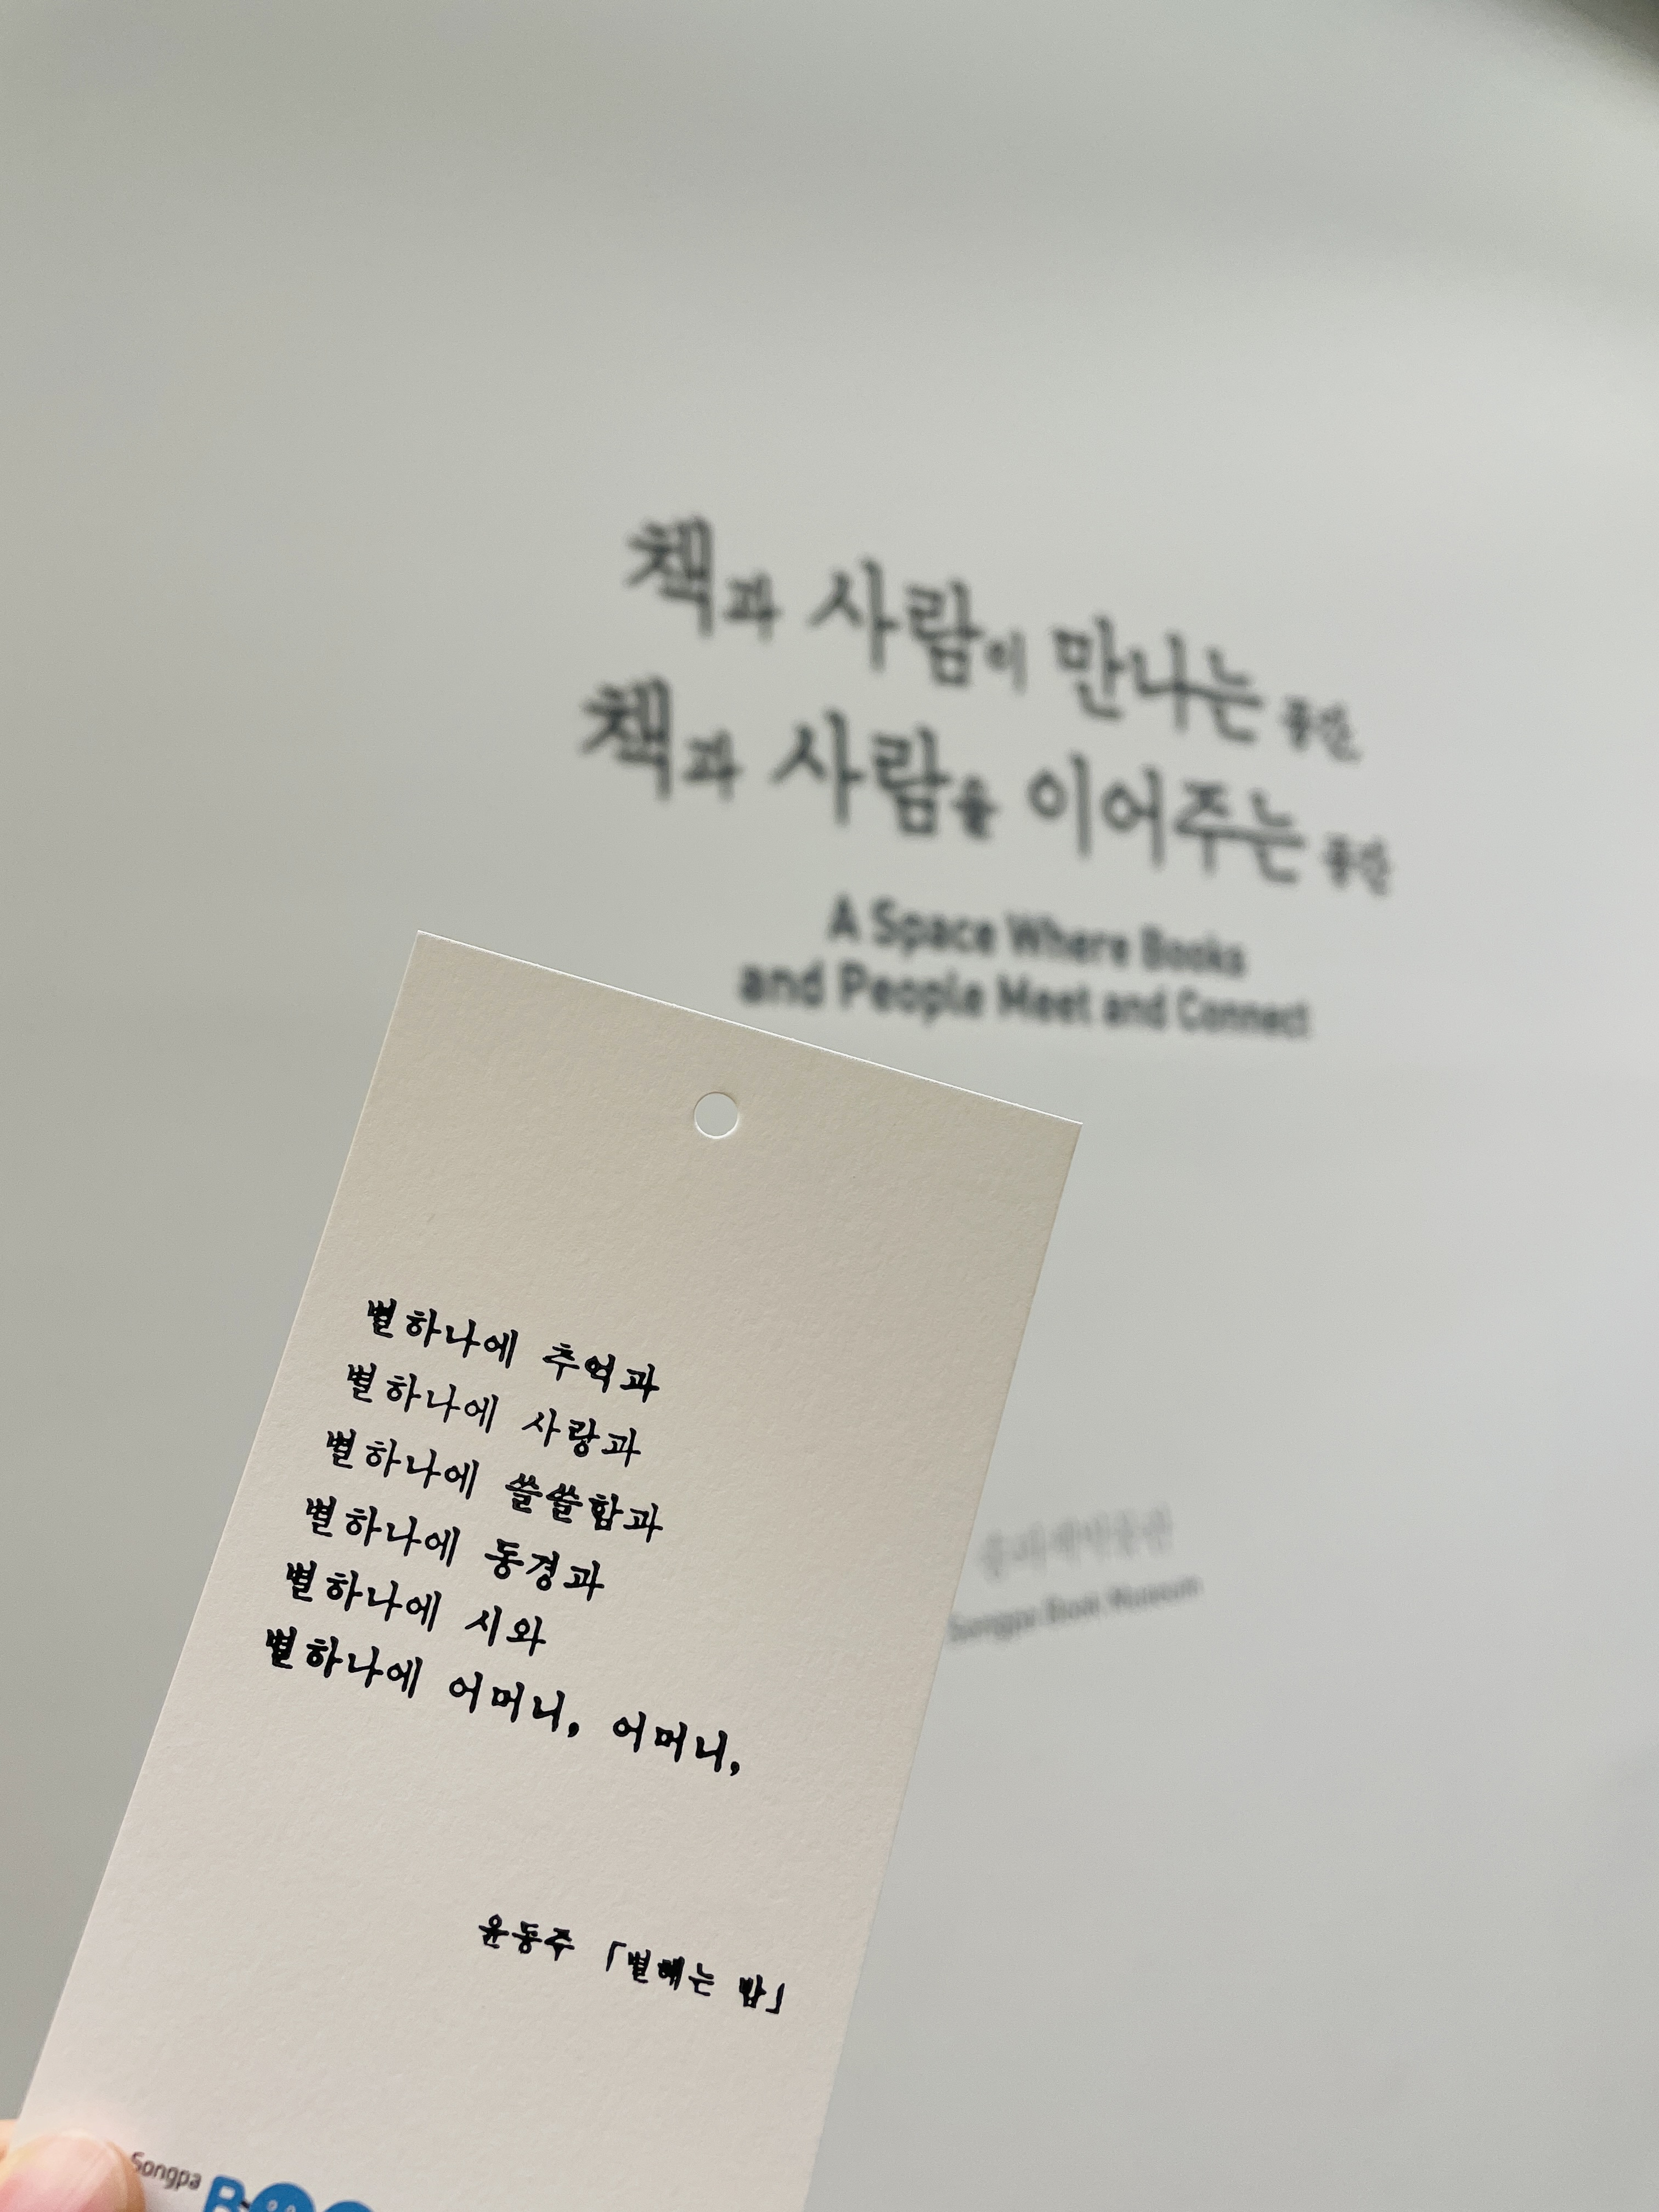 책과 사람이 만나는 공간
책과 사람을 이어주는 공간
A Space Where Books
and People Meet and Connect
별 하나에 추억과
별 하나에 사랑과
별 하나에 쓸쓸함과
별 하나에 동경과
별 하나에 시와
별 하나에 어머니, 어머니,
윤동주 「별 헤는 밤」
송파책박물관
Songpa Book Museum
Songpa